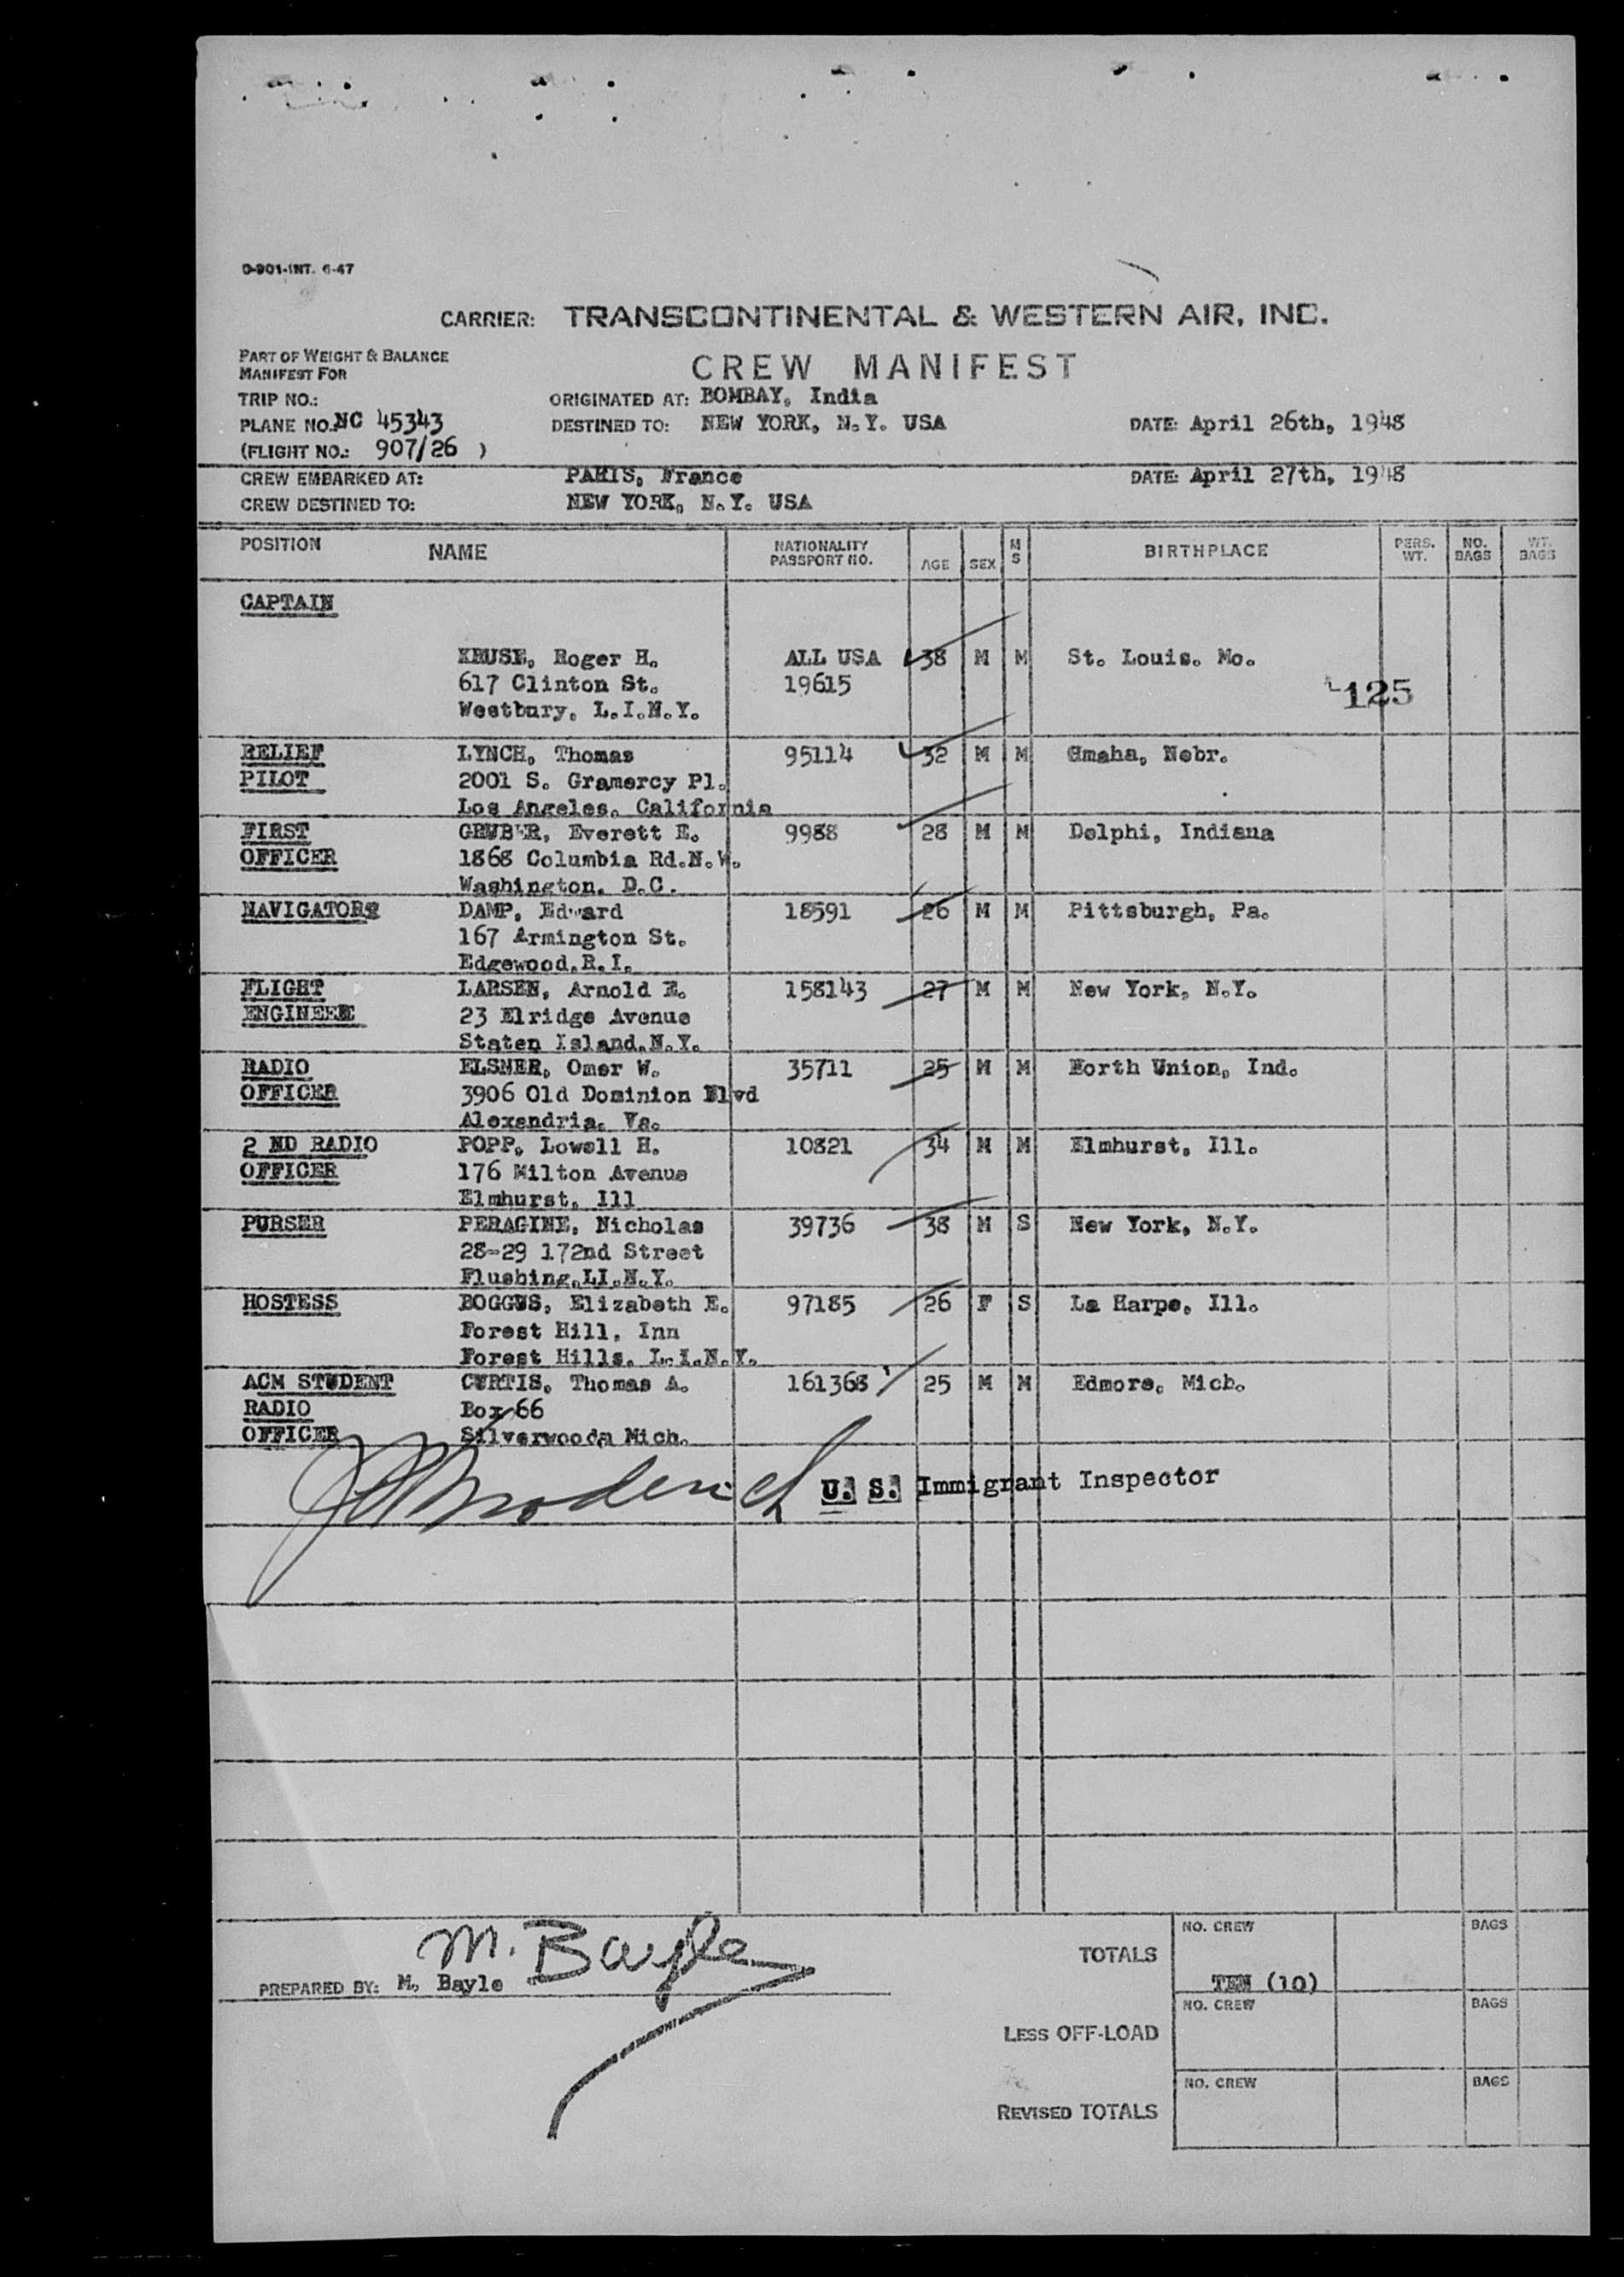 0-901-INT. 6-47
CARRIER: TRANSCONTINENTAL & WESTERN AIR, INC.
PART OF WEIGHT & BALANCE
MANIFEST FOR
CREW MANIFEST
TRIP NO.: ORIGINATED AT: BOMBAY, India
PLANE NO. NC 45343 DESTINED TO: NEW YORK, N.Y. USA DATE: April 26th, 1948
(FLIGHT NO.: 907/26 )
CREW EMBARKED AT: PARIS, France DATE: April 27th, 1948
CREW DESTINED TO: NEW YORK, N.Y. USA
POSITION NAME NATIONALITY PASSPORT NO. AGE SEX M S BIRTHPLACE PERS. WT. NO. BAGS WT. BAGS
CAPTAIN
KRUSE, Roger H. ALL USA 38 M M St. Louis. Mo.
617 Clinton St. 19615
125
Westbury, L.I.N.Y.
RELIEF LYNCH, Thomas 95114 32 M M Omaha, Nebr.
PILOT 2001 S. Gramercy Pl.
Los Angeles, California
FIRST GRUBER, Everett E. 9988 28 M M Delphi, Indiana
OFFICER 1868 Columbia Rd.N.W.
Washington. D.C.
NAVIGATOR DAMP, Edward 18591 26 M M Pittsburgh, Pa.
167 Armington St.
Edgewood.R.I.
FLIGHT LARSEN, Arnold E. 158143 27 M M New York, N.Y.
ENGINEER 23 Elridge Avenue
Staten Island.N.Y.
RADIO ELSNER, Omer W. 35711 25 M M North Union, Ind.
OFFICER 3906 Old Dominion Blvd
Alexandria. Va.
2 ND RADIO POPP, Lowell H. 10821 34 M M Elmhurst, Ill.
OFFICER 176 Milton Avenue
Elmhurst, Ill
PURSER PERAGINE, Nicholas 39736 38 M S New York, N.Y.
28-29 172nd Street
Flushing,LI.N.Y.
HOSTESS BOGGUS, Elizabeth E. 97185 26 F S La Harpe, Ill.
Forest Hill, Inn
Forest Hills. L.I.N.Y.
ACM STUDENT CURTIS, Thomas A. 161368 25 M M Edmore, Mich.
RADIO Box 66
OFFICER Silverwood, Mich.
U. S. Immigrant Inspector
M. Bayle
PREPARED BY: M. Bayle
TOTALS NO. CREW TEN (10) BAGS
LESS OFF-LOAD NO. CREW BAGS
REVISED TOTALS NO. CREW BAGS